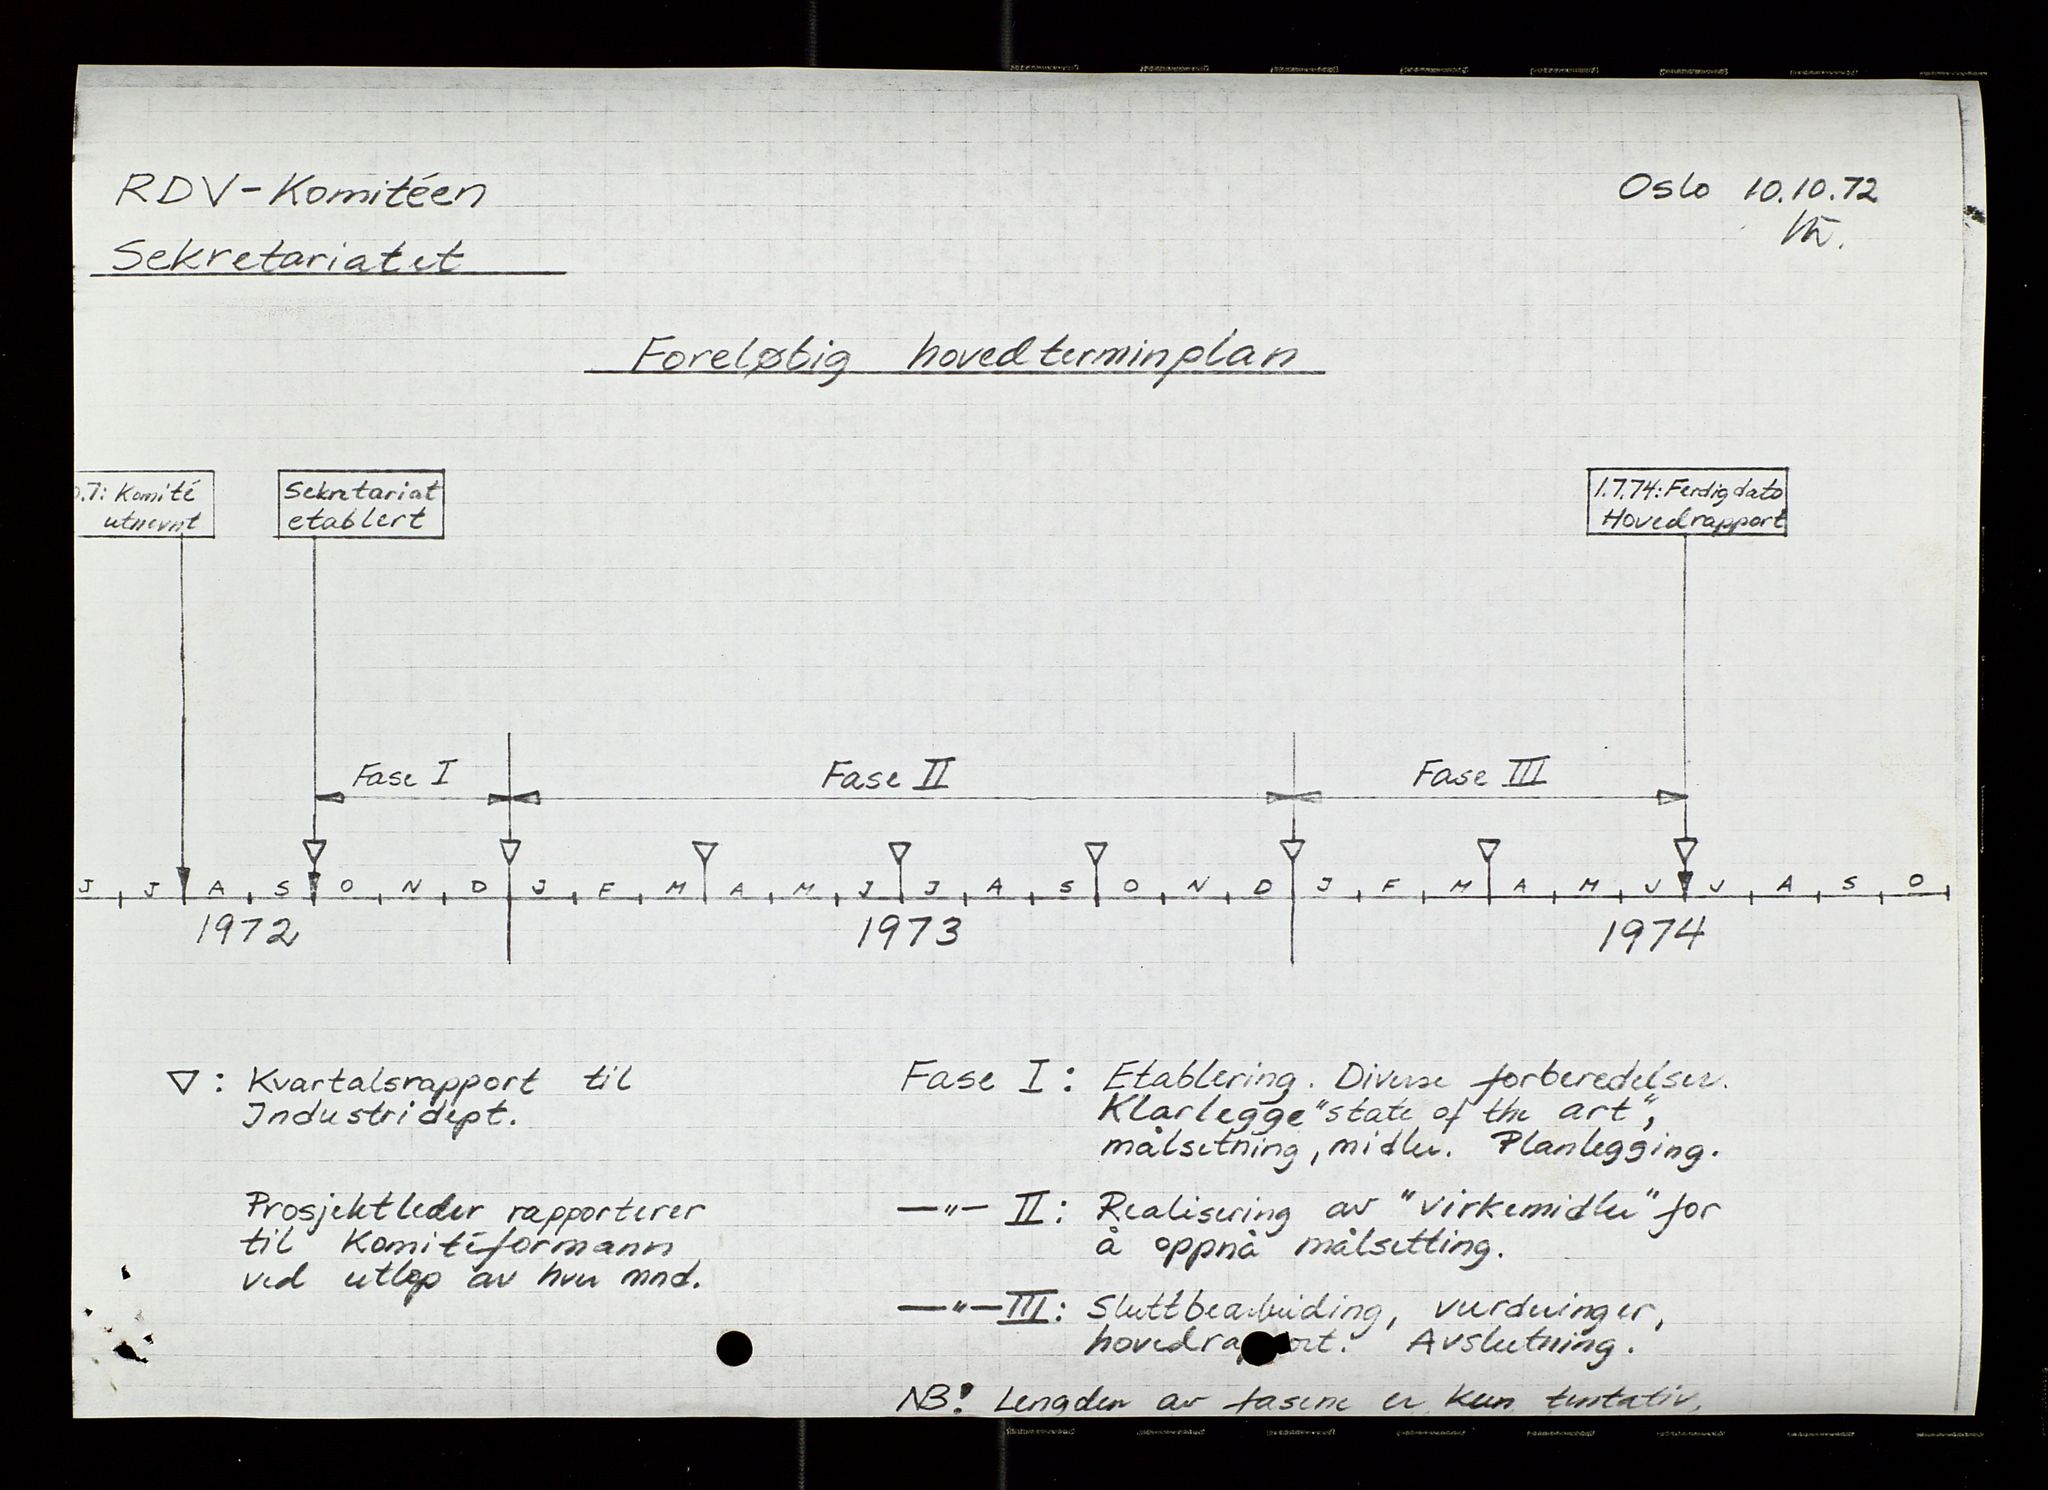 RDV-Komitéen
Oslo 10.10.72
Sekretariatet
Foreløbig hovedterminplan
0.7: Komité
utnevnt
Sekretariat
etablert
1.7.74: Ferdigdato
Hovedrapport
Fase I
Fase II
Fase III
J J A S O N D J F M A M J J A S O N D J F M A M J J A S O
1972
1973
1974
▽: Kvartalsrapport til
Industridept.
Prosjektleder rapporterer
til Komitéformann
ved utløp av hver mnd.
Fase I: Etablering. Diverse forberedelser.
Klarlegge "state of the art",
målsetning, midler. Planlegging.
—"— II: Realisering av "virkemidler" for
å oppnå målsetting.
—"— III: Sluttbearbeiding, vurderinger,
hovedrapport. Avslutning.
NB! Lengden av fasene er kun tentativ.